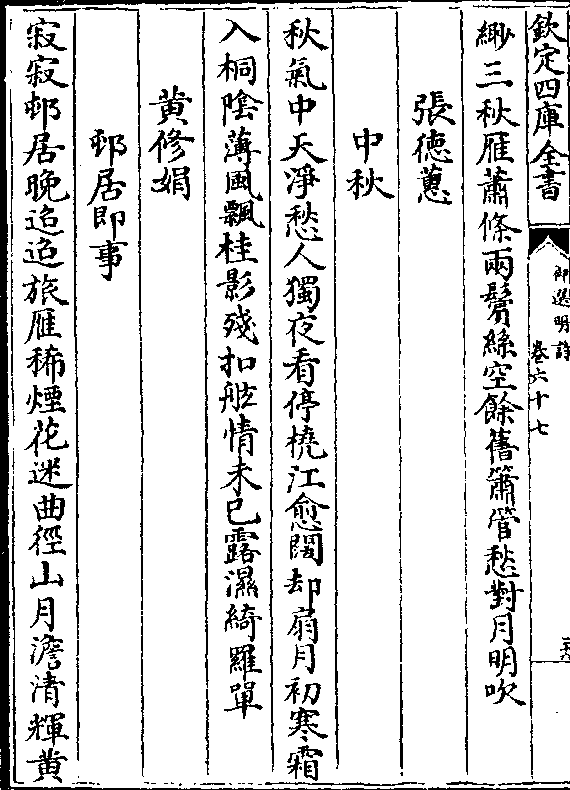 欽定四庫全書
御選明詩
卷六十七
緲三秋雁蕭條兩鬢絲空餘舊簫管愁對月明吹
張德蕙
中秋
秋氣中天凈愁人獨夜看停橈江愈闊却扇月初寒霜
入桐陰薄風飄桂影殘扣舷情未已露濕綺羅單
黄修娟
邨居即事
寂寂邨居晚迢迢旅雁稀煙花迷曲徑山月澹清輝黄